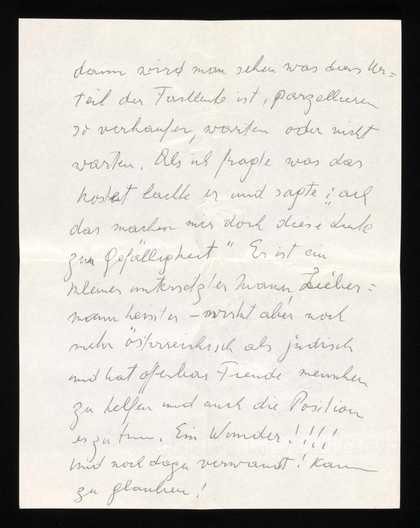 dann wird man sehen was deren Ur=
teil der Fachleute ist, parzellieren
so verkaufen, warten oder nicht
warten. Als ich fragte was das
kostet lachte er und sagte: "ach
das machen mir doch diese Leute
zur Gefälligkeit" Er ist ein
kleiner untersetzter Mann Lieber=
mann heisst er – wirkt aber noch
mehr österreichisch als jüdisch
und hat offenbar Freude menschen
zu helfen und auch die Position
es zu tun. Ein Wunder!!!!
und noch dazu verwandt! Kaum
zu glauben!